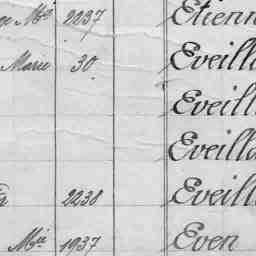 Mie 2237 Etienn
Marie 30 Eveilla
Eveilla
Eveilla
2238 Eveilla
Mie 1937 Even